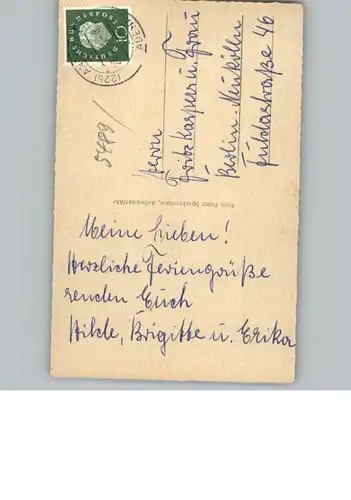 DEUTSCHE BUNDESPOST
10
(22b)
5499/
Herrn
Fritz Kasper u. Frau
Berlin-Neukölln
Fuldastraße 46
Foto Franz
Meine Lieben!
Herzliche Feriengrüße
senden Euch
Hilde, Brigitte u. Erika